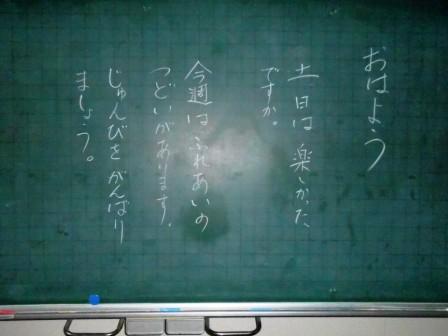 おはよう
土日は楽しかった
ですか。
今週はふれあいの
つどいがあります。
じゅんびをがんばり
ましょう。